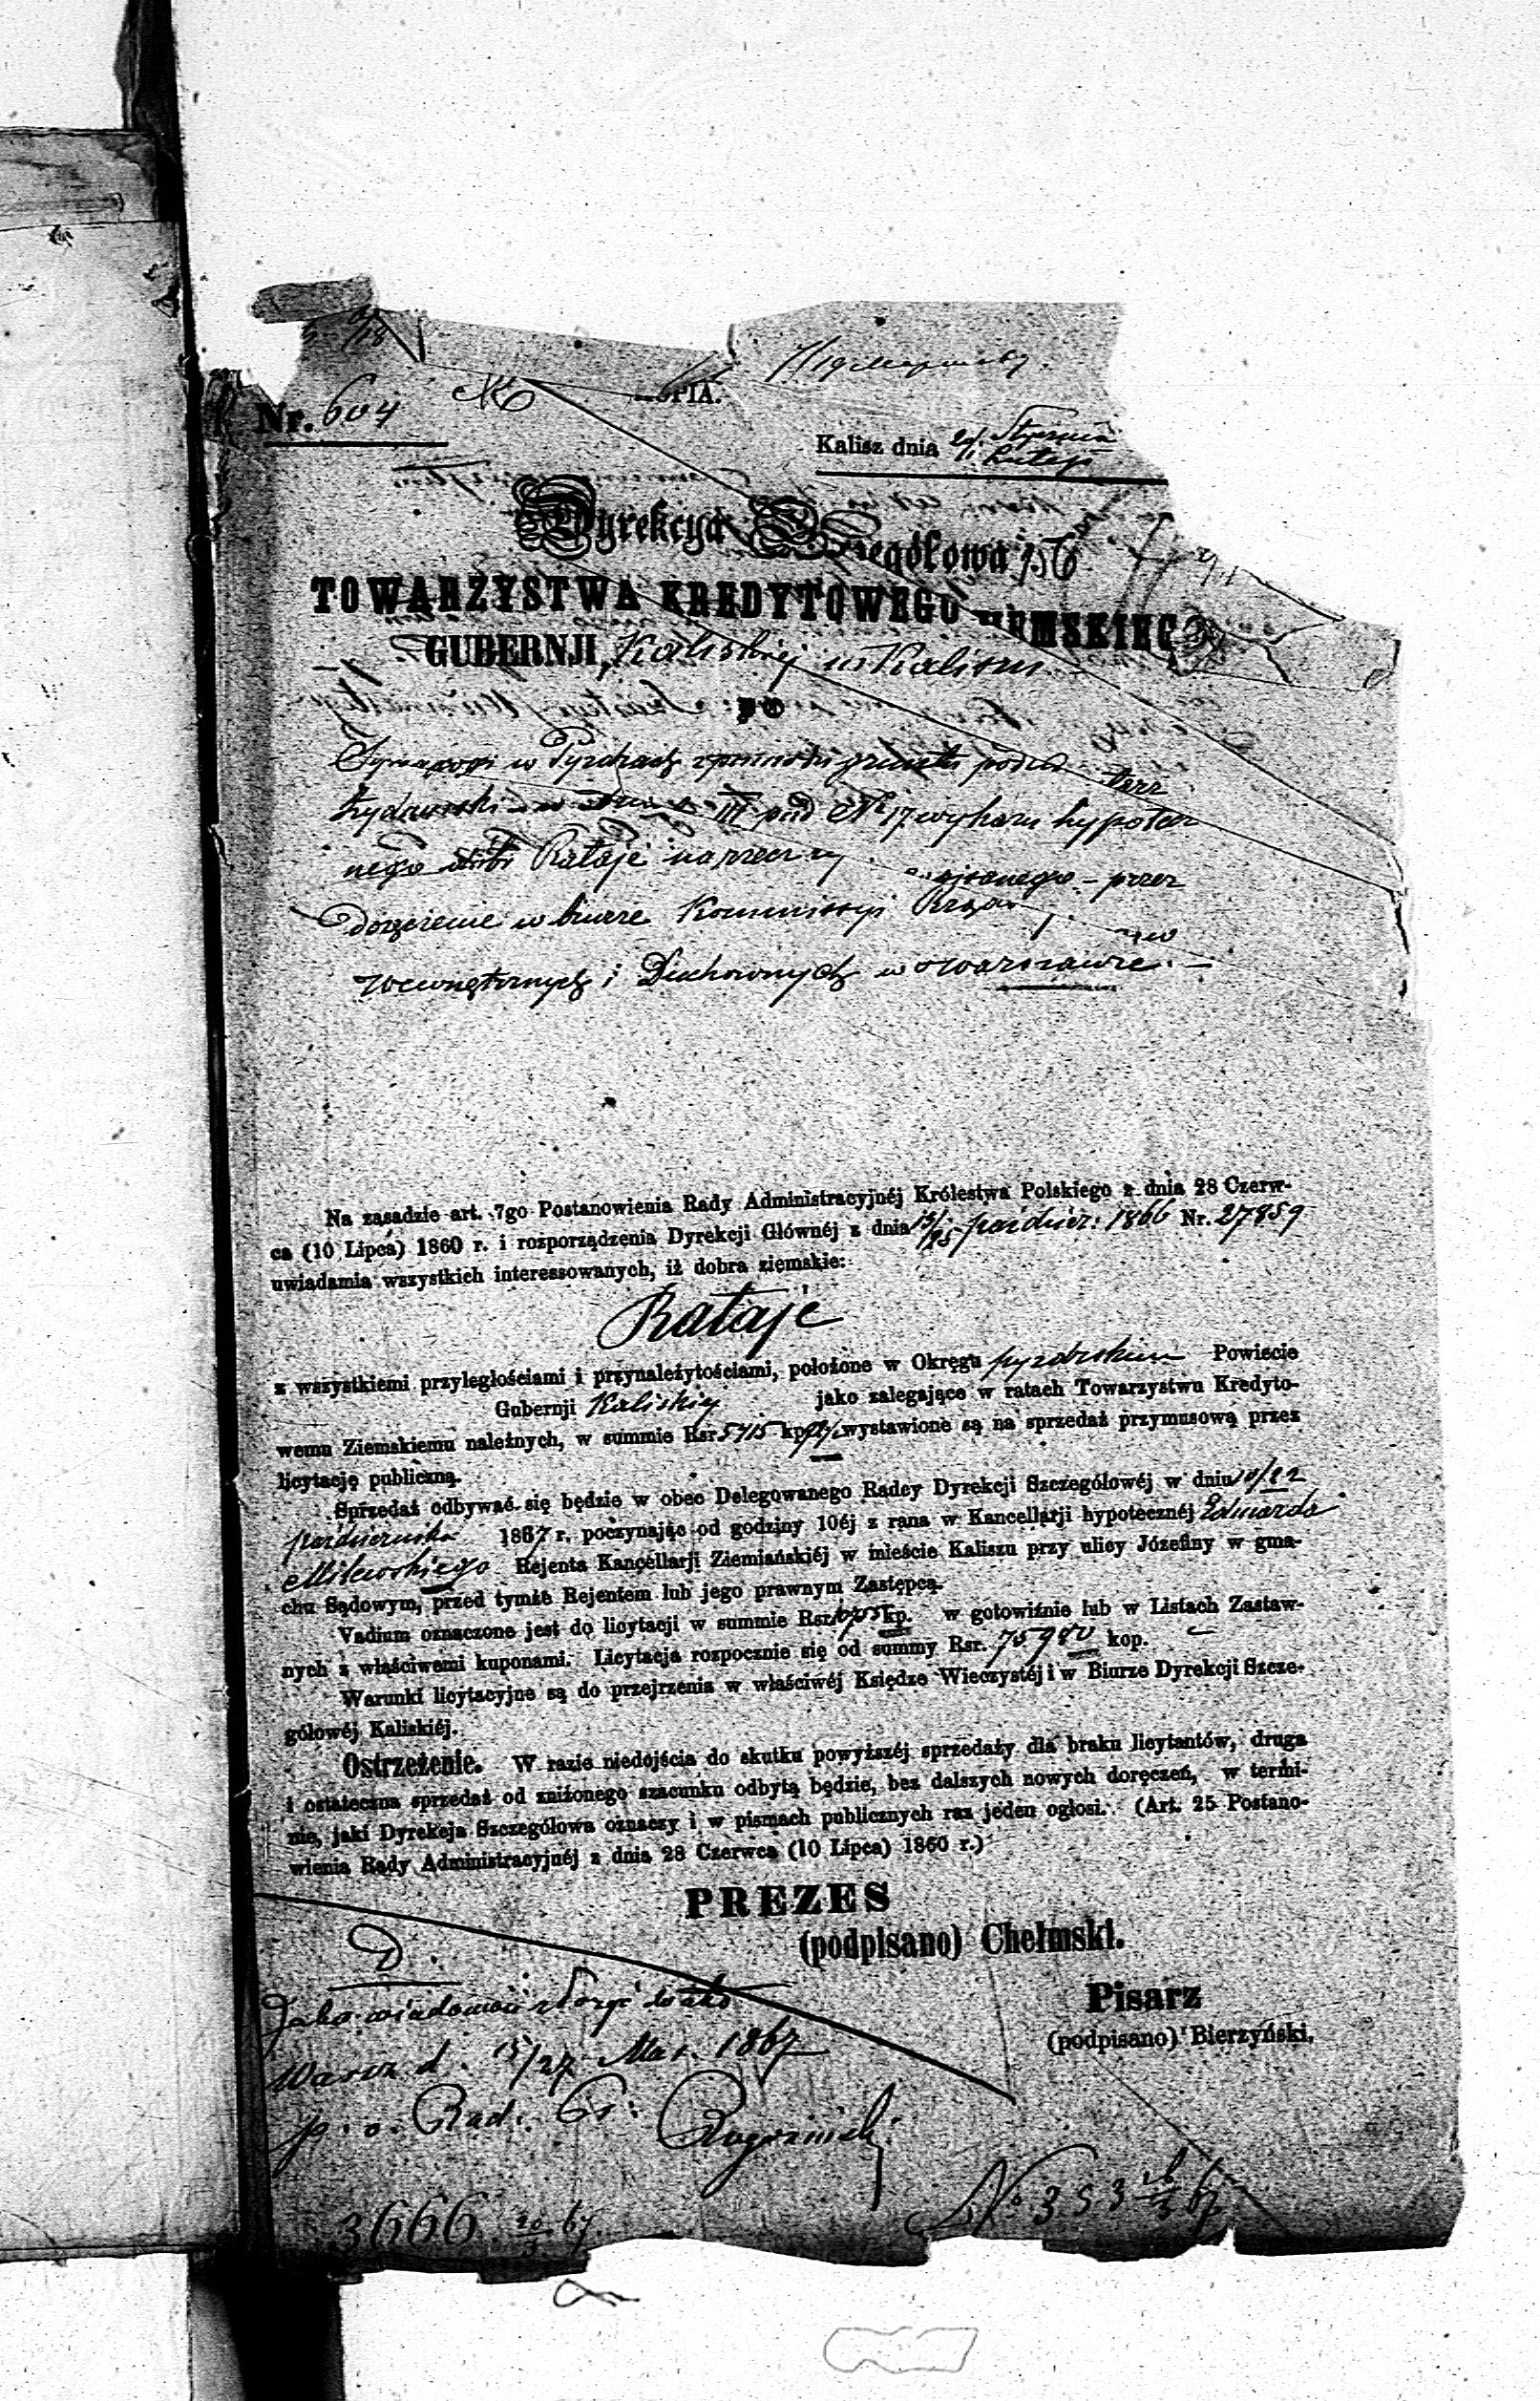 Nr. 604
OPIA.
Kalisz dnia 2/ Stycznia
Lutego
Dyrekcya Szczegółowa
TOWARZYSTWA KREDYTOWEGO ZIEMSKIEGO
GUBERNJI, Kaliskiej w Kaliszu
Do
Synagogi w Pyzdrach z pod
żydowski III pod No 17 wykazu hypotecz
nego dóbr Rataje na rzecz pisanego - przez
doręczenie w biurze Kommissyi Rząd
Wewnętrznych i Duchownych w Warszawie. -
Na zasadzie art. 7go Postanowienia Rady Administracyjnéj Królestwa Polskiego z dnia 28 Czerw-
ca (10 Lipca) 1860 r. i rozporządzenia Dyrekcji Głównéj z dnia 13/25 paździer: 1866 Nr. 27859
uwiadamia wszystkich interessowanych, iż dobra ziemskie:
Rataje
z wszystkiemi przyległościami i przynależytościami, położone w Okręgu pyzdrskim Powiecie
Gubernji Kaliskiej jako zalegające w ratach Towarzystwu Kredyto-
wemu Ziemskiemu należnych, w summie Rsr 5715 kp wystawione są na sprzedaż przymusową przez
licytację publiczną.
Sprzedaż odbywać się będzie w obec Delegowanego Radcy Dyrekcji Szczegółowéj w dniu 10/22
października 1867 r. poczynając od godziny 10éj z rana w Kancellarji hypotecznéj Edwarda
Milewskiego Rejenta Kancellarji Ziemiańskiéj w mieście Kaliszu przy ulicy Józefiny w gma-
chu Sądowym, przed tymże Rejentem lub jego prawnym Zastępcą.
Vadium oznaczone jest do licytacji w summie Rsr. kp. w gotowiźnie lub w Listach Zastaw-
nych z właściwemi kuponami. Licytacja rozpocznie się od summy Rsr. 75980 kop.
Warunki licytacyjne są do przejrzenia w właściwéj Księdze Wieczystéj i w Biurze Dyrekcji Szcze-
gółowéj Kaliskiéj.
Ostrzeżenie. W razie niedojścia do skutku powyższéj sprzedaży dla braku licytantów, druga
i ostateczna sprzedaż od zniżonego szacunku odbytą będzie, bez dalszych nowych doręczeń, w termi-
nie, jaki Dyrekcja Szczegółowa oznaczy i w pismach publicznych raz jeden ogłosi. (Art. 25 Postano-
wienia Rady Administracyjnéj z dnia 28 Czerwca (10 Lipca) 1860 r.)
PREZES
(podpisano) Chełmski.
D.
Pisarz
Jako wiadomość złożyć do akt
(podpisano) Bierzyński.
Warsz d. 15/27 Mar. 1867
p. o. Rad.
3666 20/3 67.
No 353 26/3 67